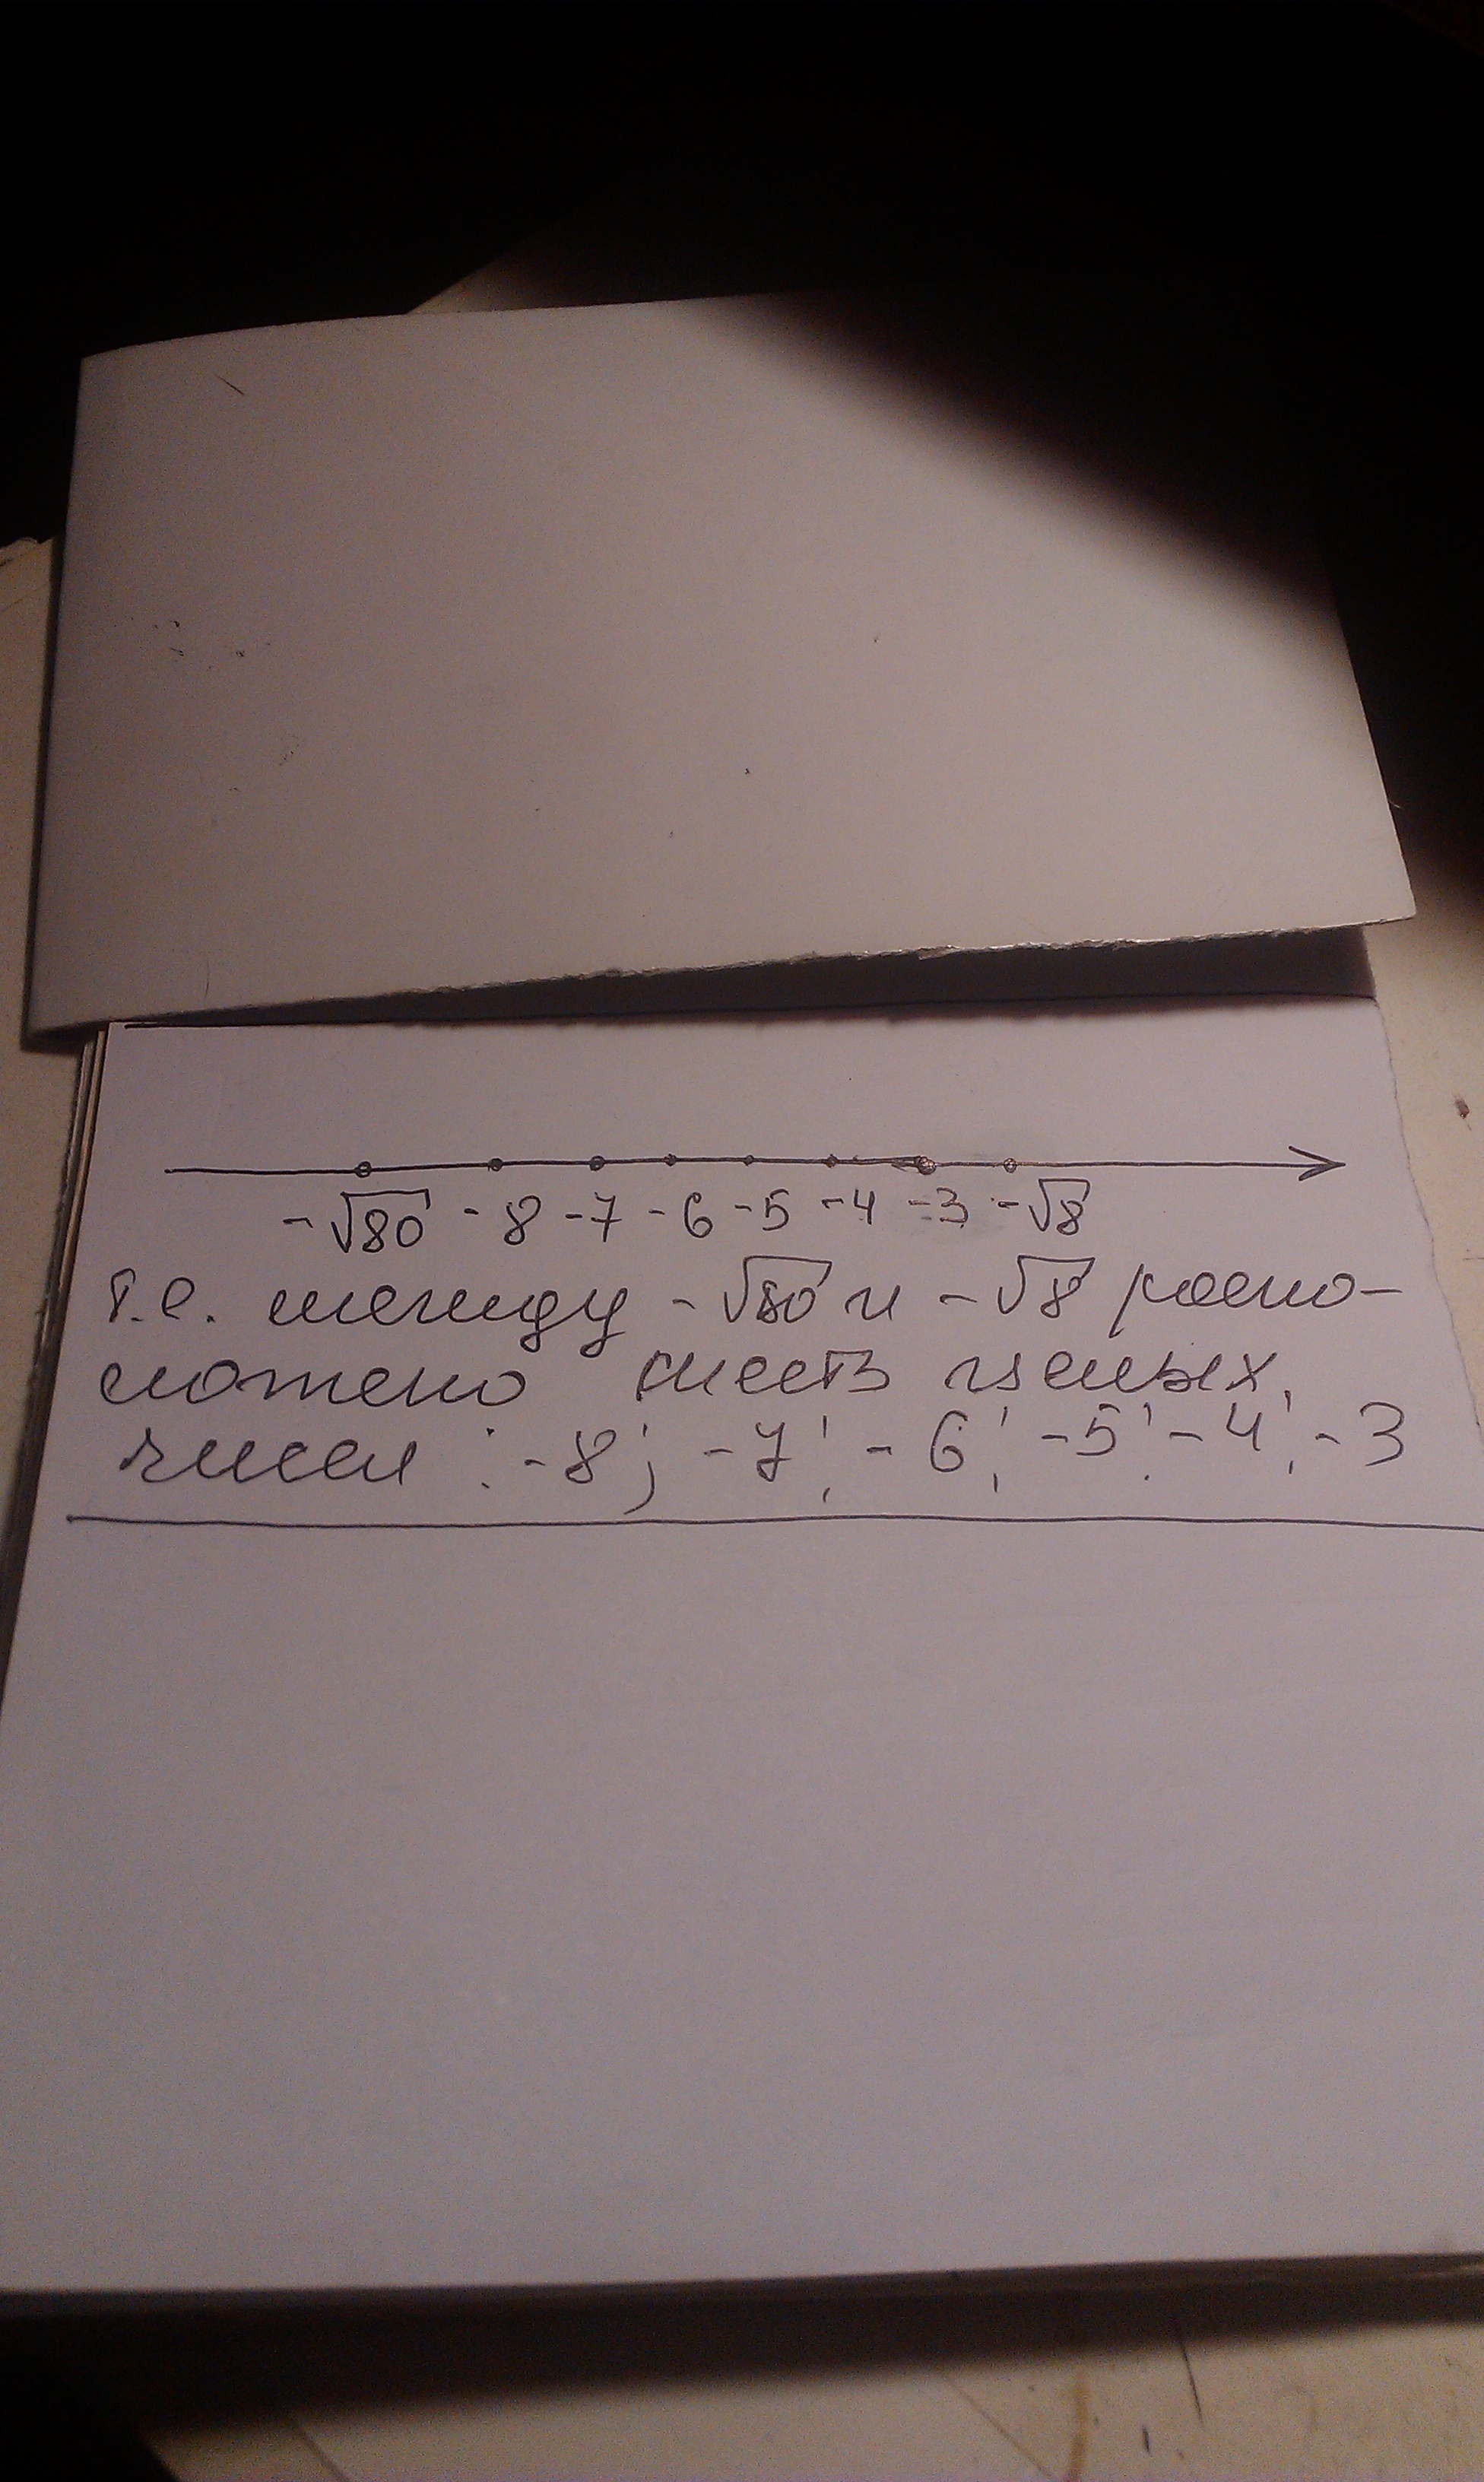 -√80 -8 -7 -6 -5 -4 -3 -√8
т.е. между -√80 и -√8 распо-
ложено шесть целых
чисел : -8; -7; -6; -5; -4; -3